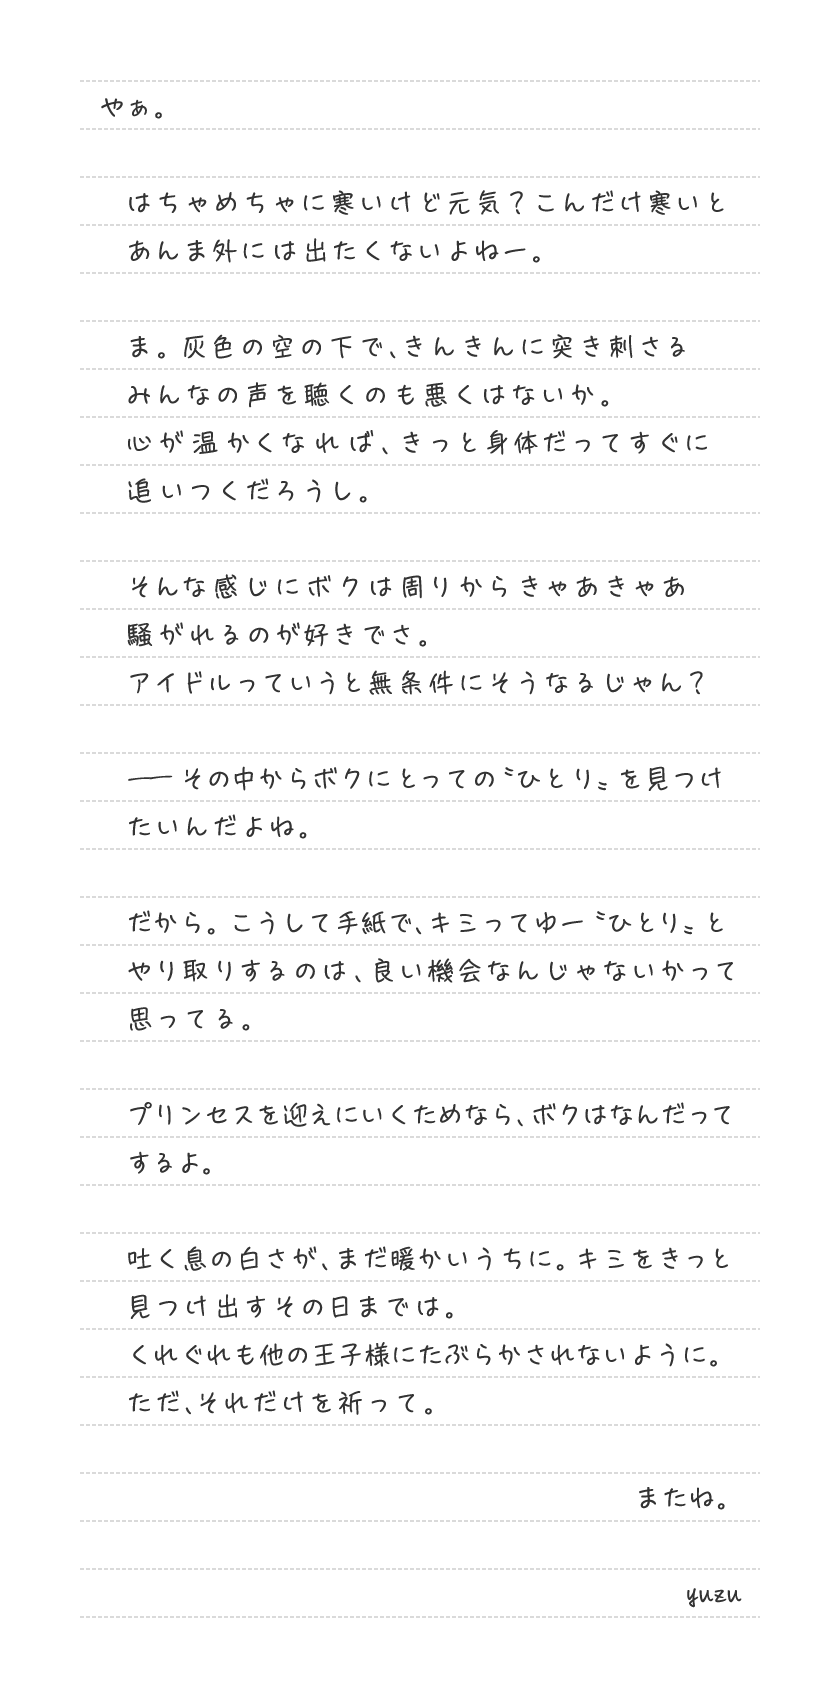 やぁ。
はちゃめちゃに寒いけど元気？こんだけ寒いと
あんま外には出たくないよねー。
ま。灰色の空の下で、きんきんに突き刺さる
みんなの声を聴くのも悪くはないか。
心が温かくなれば、きっと身体だってすぐに
追いつくだろうし。
そんな感じにボクは周りからきゃあきゃあ
騒がれるのが好きでさ。
アイドルっていうと無条件にそうなるじゃん？
――その中からボクにとっての〝ひとり〟を見つけ
たいんだよね。
だから。こうして手紙で、キミってゆー〝ひとり〟と
やり取りするのは、良い機会なんじゃないかって
思ってる。
プリンセスを迎えにいくためなら、ボクはなんだって
するよ。
吐く息の白さが、まだ暖かいうちに。キミをきっと
見つけ出すその日までは。
くれぐれも他の王子様にたぶらかされないように。
ただ、それだけを祈って。
またね。
yuzu